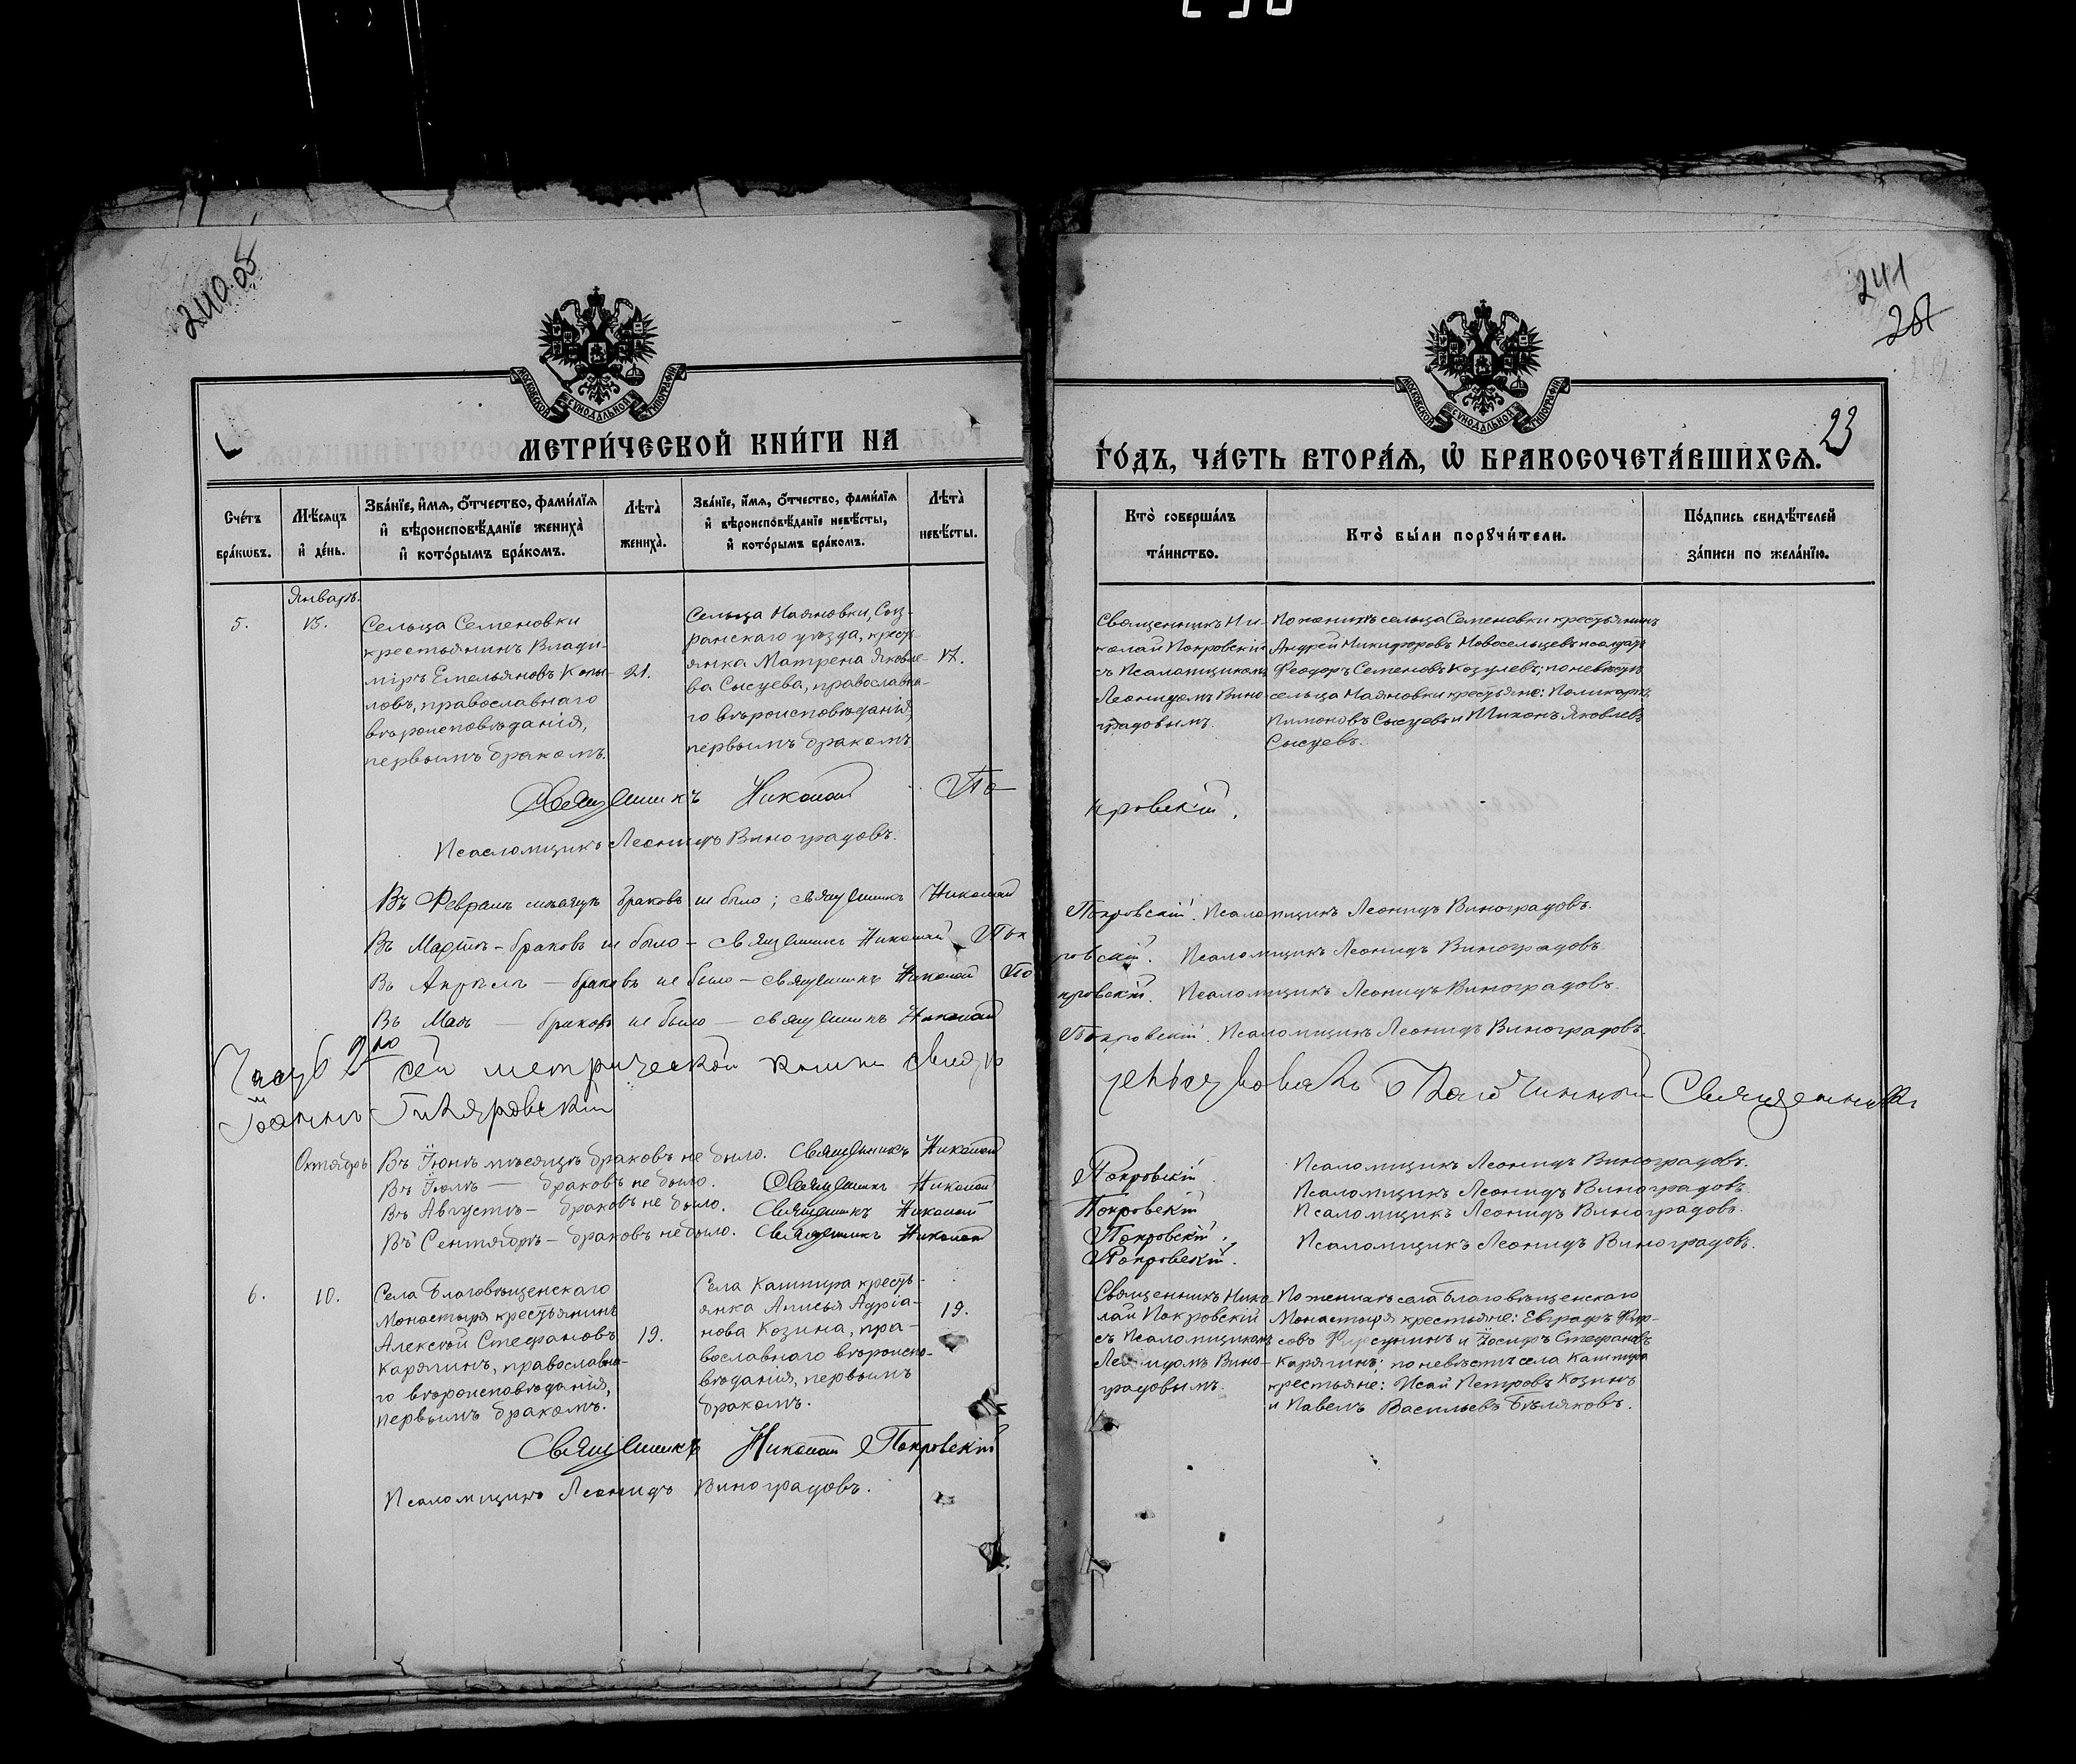 240 об
241
МОСКОВСКОЙ СУНОДАЛЬНОЙ ТИПОГРАФІИ
МОСКОВСКОЙ СУНОДАЛЬНОЙ ТИПОГРАФІИ
23
МЕТРИ́ЧЕСКОЙ КНИ́ГИ НА
ГО́ДЪ, ЧА́СТЬ ВТОРА́Я, Ѡ БРАКОСОЧЕТА́ВШИХСЯ.
Сче́тъ бра́кѡвъ.
Мѣ́сяцъ и҆ де́нь.
Зва́нїе, и҆́мя, ѻ҆́тчество, фами́лїя и҆ вѣроисповѣ́данїе жениха̀ и҆ кото́рымъ бра́комъ.
Лѣ́та̀ жениха̀.
Зва́нїе, и҆́мя, ѻ҆́тчество, фами́лїя и҆ вѣроисповѣ́данїе невѣ́сты, и҆ кото́рымъ бра́комъ.
Лѣ́та̀ невѣ́сты.
Кто̀ соверша́лъ та́инство.
Кто̀ бы́ли порꙋчи́тели.
По́дпись свидѣ́телей за́писи по жела́нїю.
Январь.
5.
15.
Сельца Семеновки
крестьянинъ Влади-
міръ Емельяновъ Копы-
ловъ, православнаго
вѣроисповѣданія,
первымъ бракомъ.
21.
Сельца Маяновки, Сыз-
ранскаго уѣзда, кресть-
янка Матрена Яковле-
ва Сысуева, православна-
го вѣроисповѣданія,
первымъ бракомъ
17.
Священникъ Ни-
колай Покровскій
съ Псаломщикомъ
Леонидомъ Вино-
градовымъ.
По женихѣ сельца Семеновки крестьянинъ
Андрей Никифоровъ Новосельцевъ и солдатъ
Феодоръ Семеновъ Козулевъ; по невѣстѣ
сельца Маяновки крестьяне: Поликарпъ
Пимоновъ Сысуевъ и Тихонъ Яковлевъ
Сысуевъ.
Священникъ Николай По-
кровскій.
Псаломщикъ Леонидъ Виноградовъ.
Въ Февралѣ мѣсяцѣ браковъ не было; священникъ Николай
Покровскій. Псаломщикъ Леонидъ Виноградовъ.
Въ Мартѣ - браковъ не было - священникъ Николай Пок
ровскій. Псаломщикъ Леонидъ Виноградовъ.
Въ Апрѣлѣ - браковъ не было - священникъ Николай По
кровскій. Псаломщикъ Леонидъ Виноградовъ.
Въ Маѣ - браковъ не было - священникъ Николай
Покровскій. Псаломщикъ Леонидъ Виноградовъ.
Часть 2ю сей метрической книги свидѣ
тельствовалъ Благочинный Священникъ
Іоаннъ Гиляровскій
Октябрь
Въ Іюнѣ мѣсяцѣ браковъ не было. Священникъ Николай
Покровскій. Псаломщикъ Леонидъ Виноградовъ.
Въ Іюлѣ - браковъ не было. Священникъ Николай
Покровскій Псаломщикъ Леонидъ Виноградовъ
Въ Августѣ - браковъ не было. Священникъ Николай
Покровскій. Псаломщикъ Леонидъ Виноградовъ.
Въ Сентябрѣ - браковъ не было. Священникъ Николай
Покровскій. Псаломщикъ Леонидъ Виноградовъ.
6.
10.
Села Благовѣщенскаго
Монастыря крестьянинъ
Алексѣй Стефановъ
Карягинъ, православна-
го вѣроисповѣданія,
первымъ бракомъ.
19.
Села Кашпира кресть-
янка Анисья Адріа-
нова Козина, пра-
вославнаго вѣроиспо-
вѣданія, первымъ
бракомъ.
19.
Священникъ Нико-
лай Покровскій
съ Псаломщикомъ
Леонидомъ Вино-
градовымъ.
По женихѣ села Благовѣщенскаго
Монастыря крестьяне: Евграфъ Фир-
совъ и Іосифъ Стефановъ
Карягинъ; по невѣстѣ села Кашпира
крестьяне: Исай Петровъ Козинъ
и Павелъ Васильевъ Бѣляковъ.
Священникъ Николай Покровскій
Псаломщикъ Леонидъ Виноградовъ.